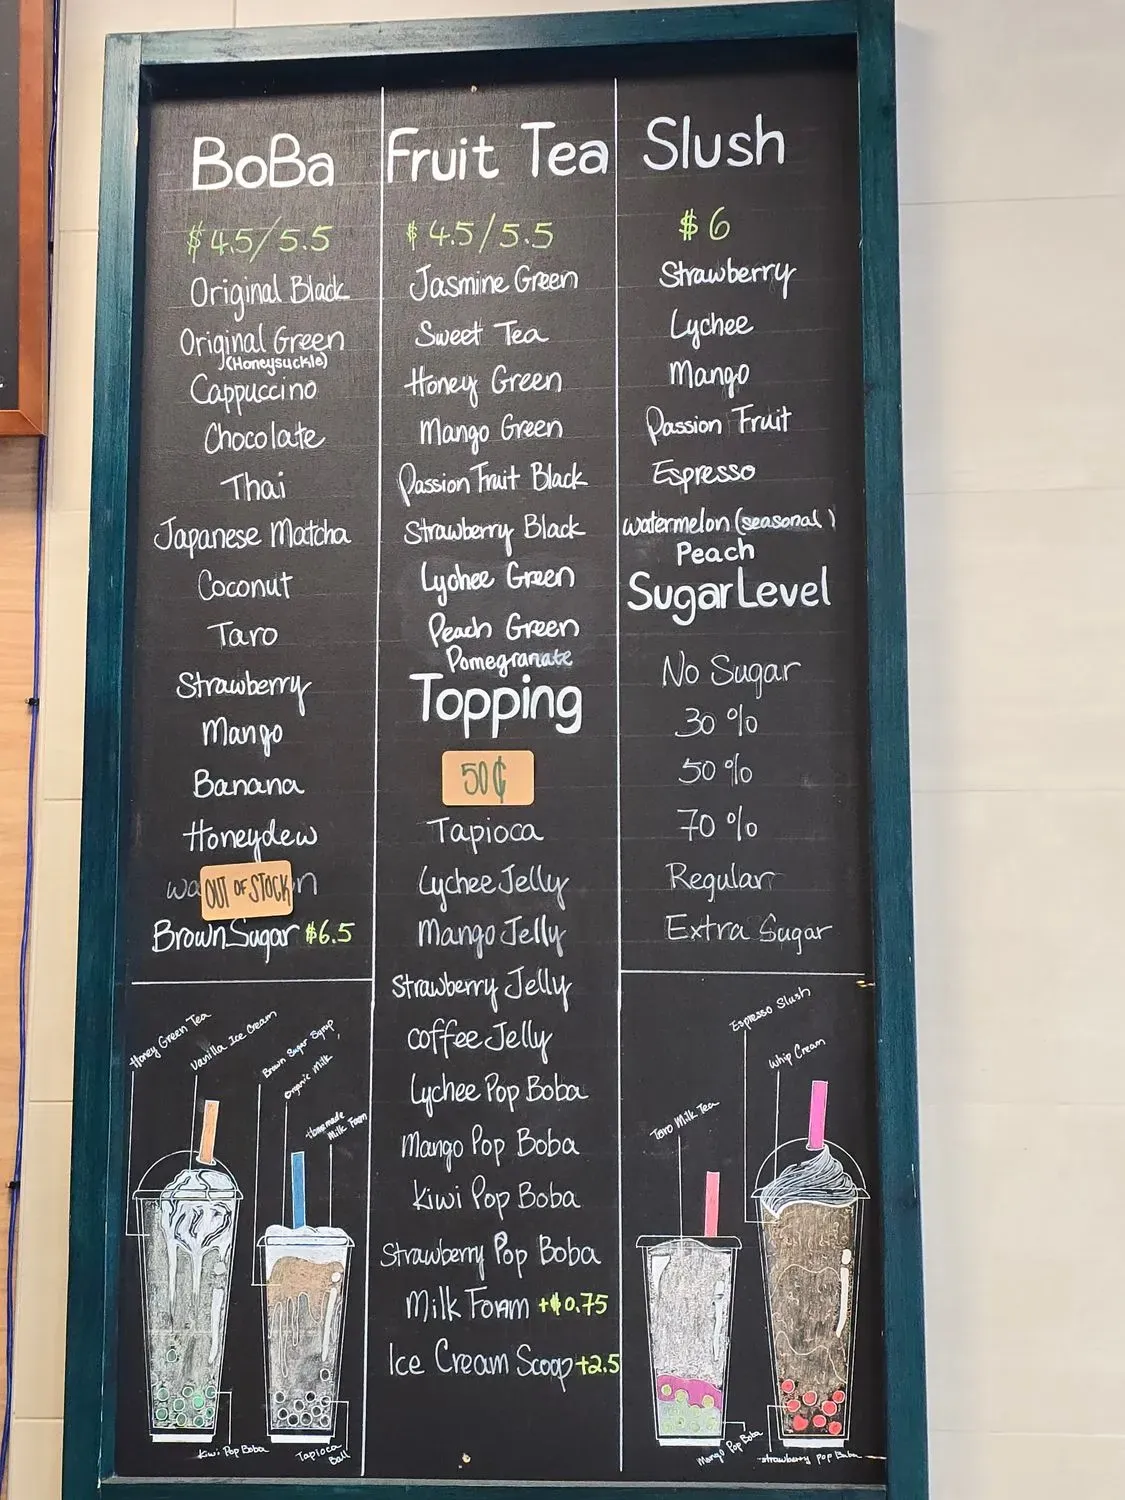 BoBa
$4.5/5.5
Original Black
Original Green
(Honeysuckle)
Cappuccino
Chocolate
Thai
Japanese Matcha
Coconut
Taro
Strawberry
Mango
Banana
Honeydew
OUT OF STOCK
Brown Sugar $6.5
Fruit Tea
$4.5/5.5
Jasmine Green
Sweet Tea
Honey Green
Mango Green
Passion Fruit Black
Strawberry Black
Lychee Green
Peach Green
Pomegranate
Topping
50¢
Tapioca
Lychee Jelly
Mango Jelly
Strawberry Jelly
coffee Jelly
Lychee Pop Boba
Mango Pop Boba
Kiwi Pop Boba
Strawberry Pop Boba
Milk Foam +$0.75
Ice Cream Scoop +2.5
Slush
$6
Strawberry
Lychee
Mango
Passion Fruit
Espresso
watermelon (seasonal)
Peach
Sugar Level
No Sugar
30 %
50 %
70 %
Regular
Extra Sugar
Honey Green Tea
Vanilla Ice Cream
Brown Sugar Syrup
Organic Milk
Homemade
Milk Foam
Kiwi Pop Boba
Tapioca
Ball
Espresso Slush
Whip Cream
Taro Milk Tea
Mango Pop Boba
strawberry pop Boba